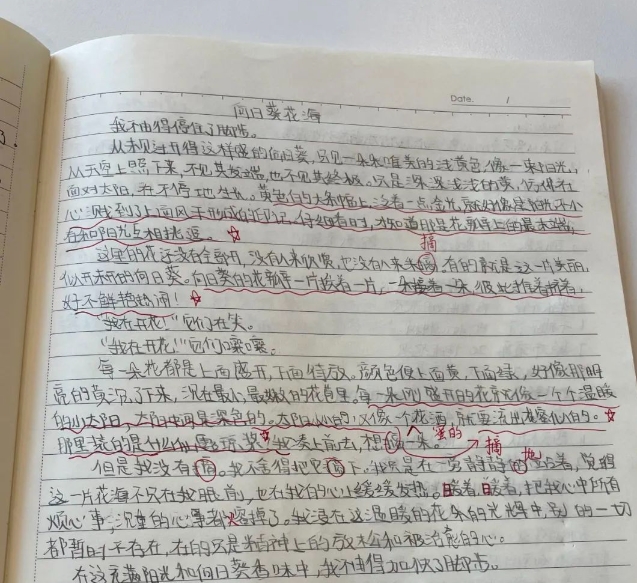 Date: /
向日葵花海
我不由得停住了脚步。
从未见过开得这样盛的向日葵,只见一朵朵唯美的浅黄色,像一束阳光,
从天空上照下来,不见其发端,也不见其终极。只是深深浅浅的黄,仿佛在
面对太阳,并不停地生长。黄色的大和面上,泛着一点金光,就好像是阳光不小
心溅到了上面风干形成的印记。仔细看时,才知道那是花瓣上的最末端,
在和阳光互相挑逗。
摘
这里的花还没有全部开,没有人来欣赏,也没有人来,有的就是这一片美丽
似开未开的向日葵。向日葵的花瓣一片挨着一片,一朵接着一朵,彼此推着挤着,
好不鲜艳热闹!
"我在开花!"它们在笑。
"我在开花!"它们嚷嚷。
每一朵花都是上面盛开,下面待放。颜色便上面黄,下面绿,好像那明
亮的黄沉了下来,沉在最小最嫩的花骨里。每一朵刚盛开的花就像一个个温暖
的小太阳,太阳中间是深色的,太阳心的又像一个花洒,就要流出蜜似的。
那里装的是什么仙露琼浆?我凑上前去,想一朵。
蛋的
摘 地
但是我没有,我不舍得把它下。我只是在一旁静静站着,觉得
这一片花海不只在我眼前,也在我的心上缓缓发热。暖着,暖着,把我心中所有
烦心事,沉重的心事都熔掉了。我浸在这温暖的花朵的光辉中,别的一切
都暂时不存在,有的只是精神上的放松和被治愈的心。
在这充满阳光和向日葵香味中,我不由得加快了脚步。